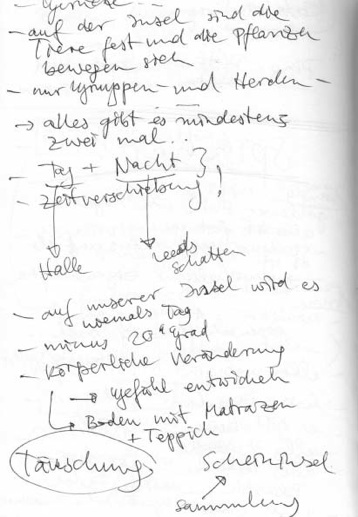 - auf der Insel sind die
Tiere fest und die Pflanzen
bewegen sich
- nur Gruppen- und Herden-
→ alles gibt es mindestens
zwei mal..
- Tag + Nacht }
- Zeitverschiebung !
Halle
Schatten
- auf unserer Insel wird es
niemals Tag
- minus 20 Grad
- körperliche Veränderung
→ Gefühl entwickeln
→ Boden mit Matrazen
+ Teppich
Täuschung
Scheininsel
Sammlung